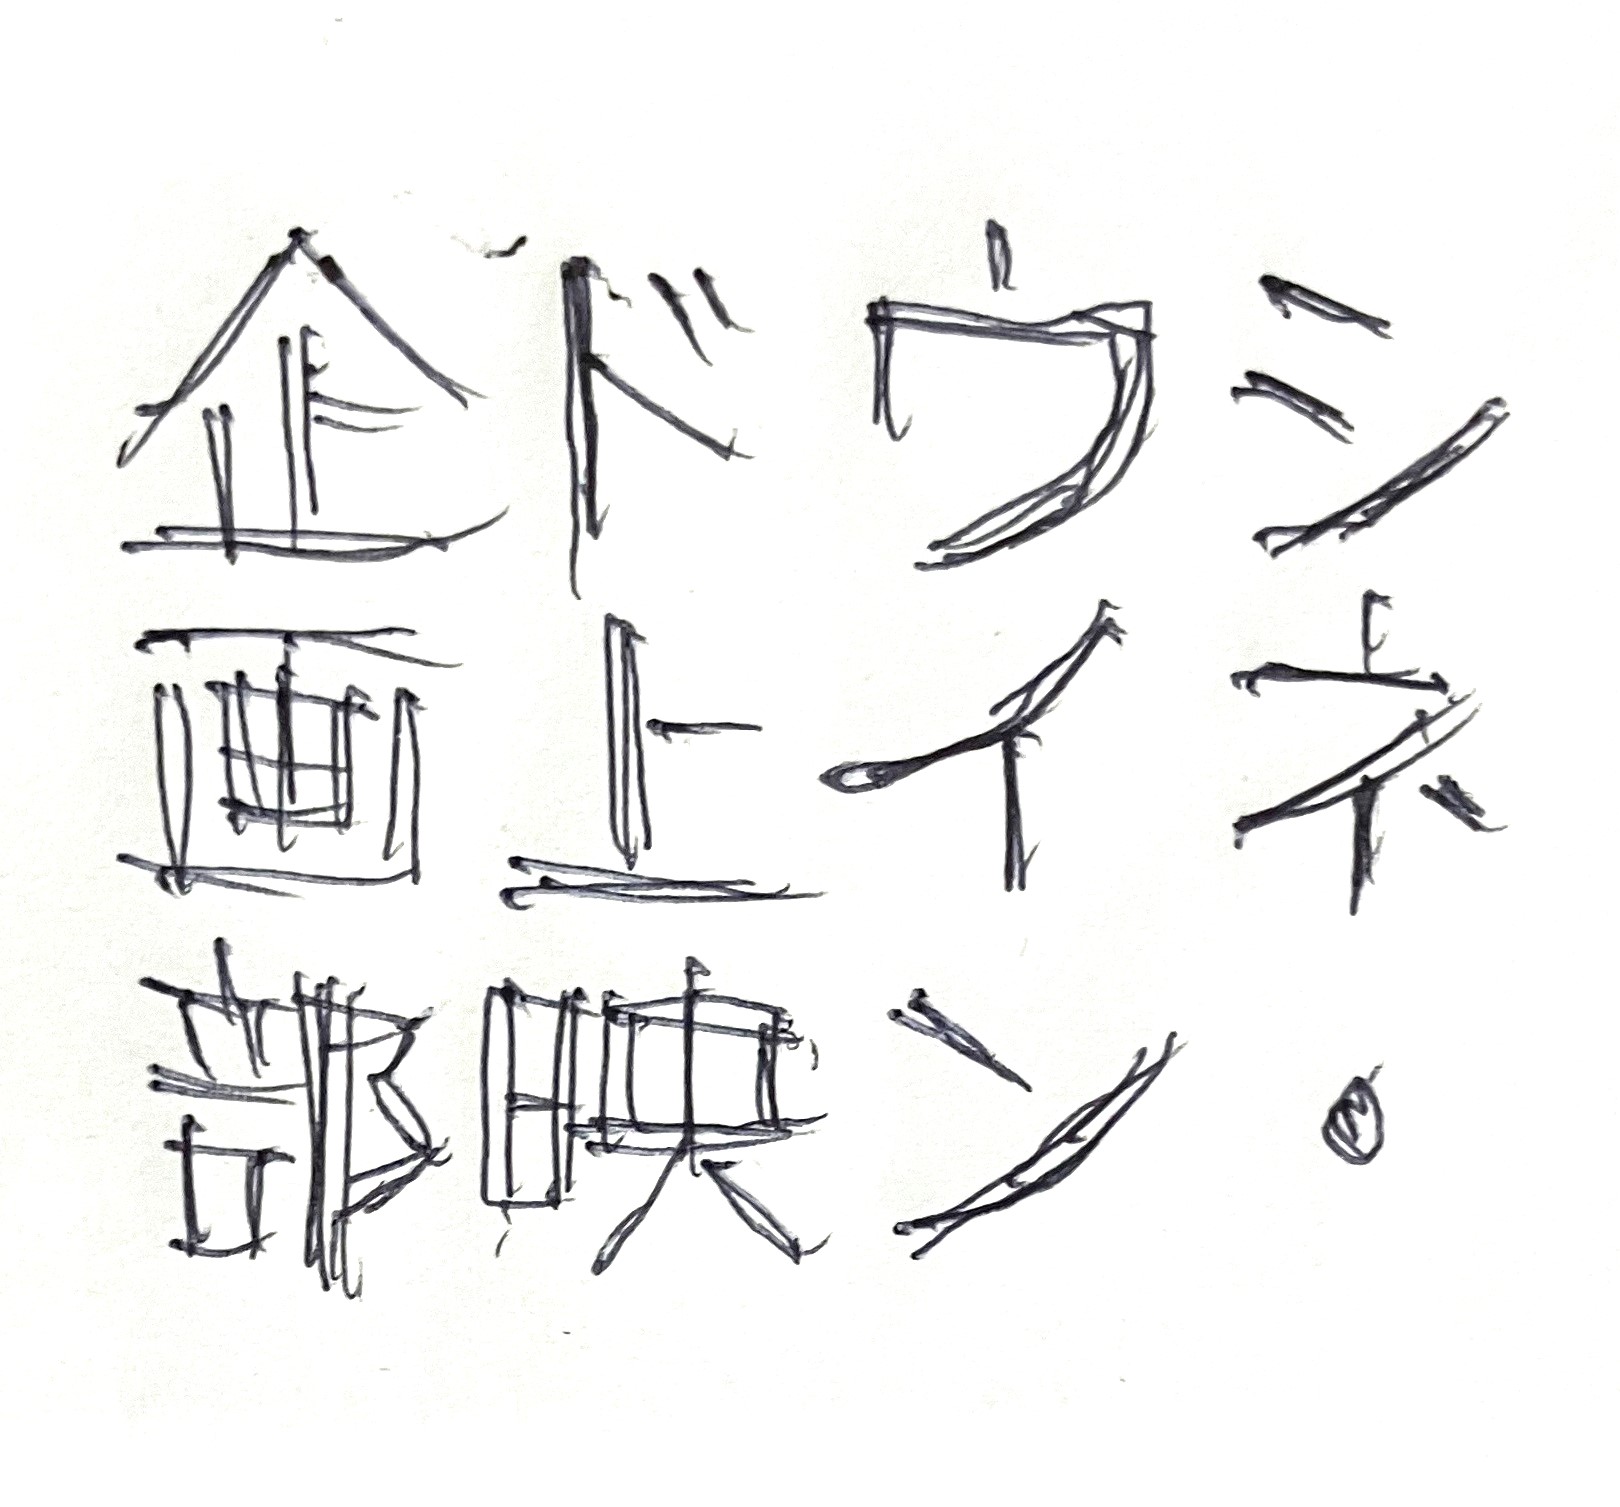 シネ・
ウイン
ド上映
企画部